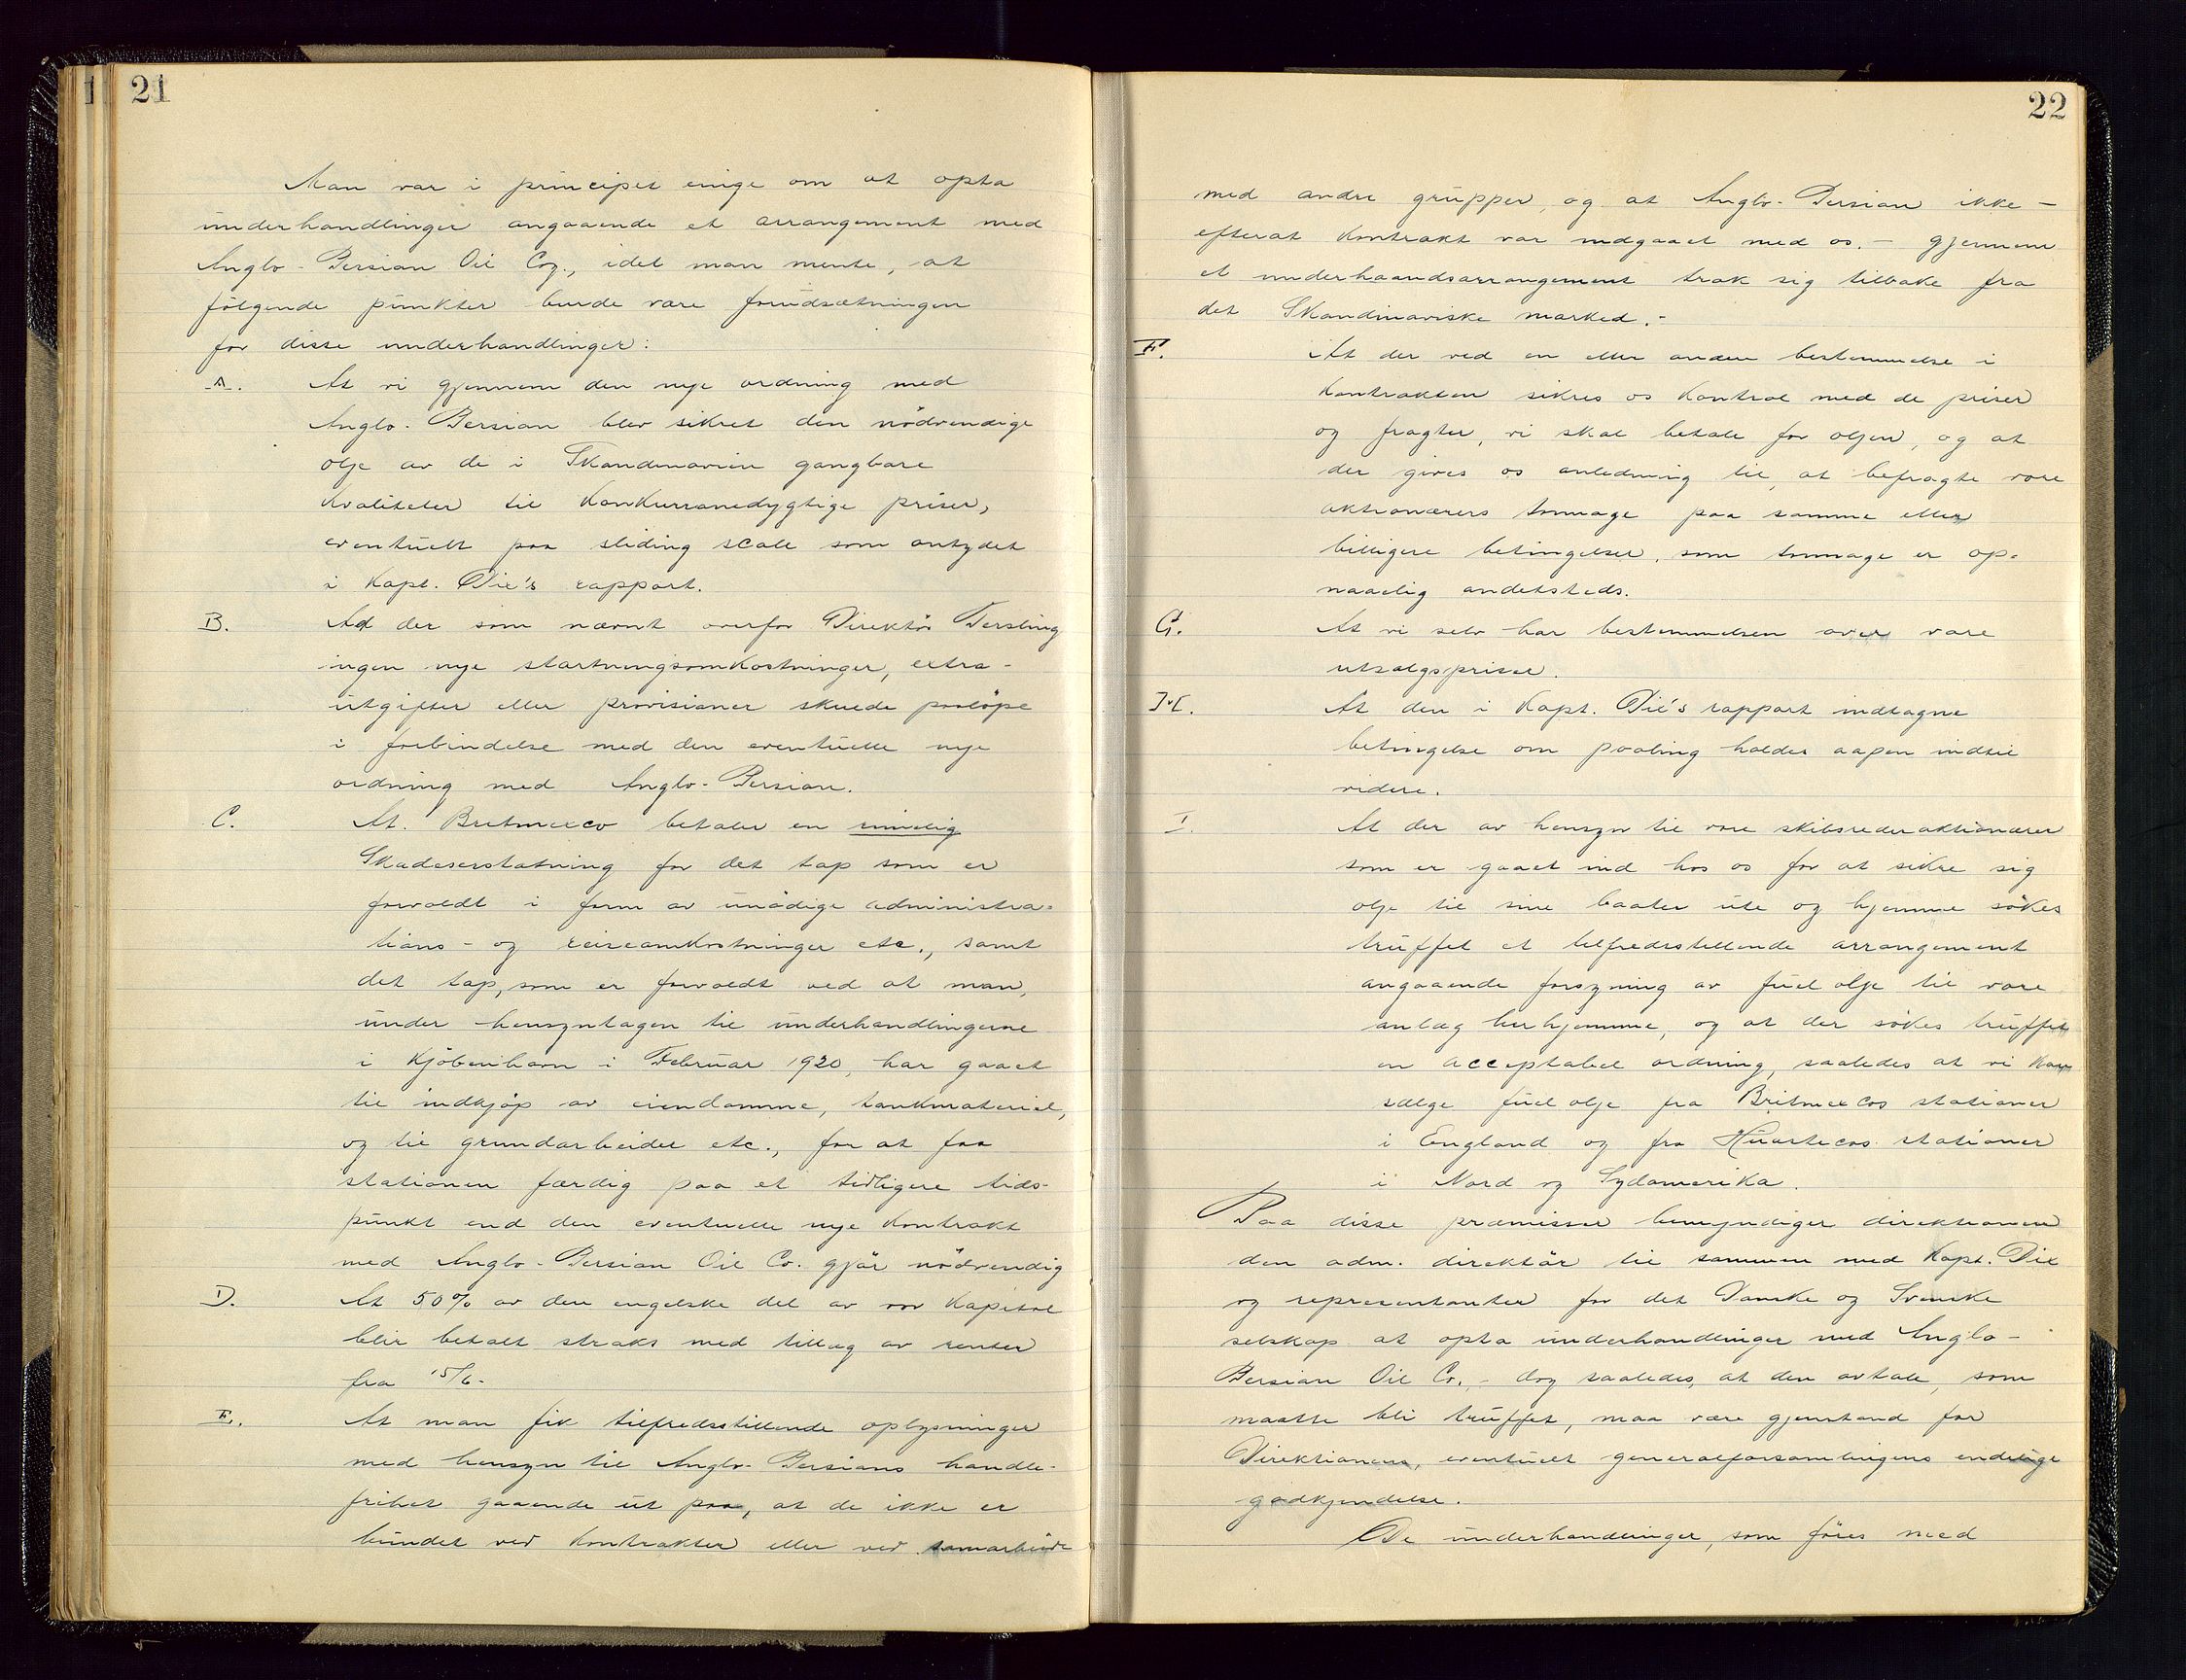 21
Man var i princippet enige om at opta
underhandlinger angaaende et arrangement med
Anglo-Persian Oil Coy., idet man mente, at
følgende punkter burde være forudsætningen
for disse underhandlinger:
A. At vi gjennem den nye ordning med
Anglo-Persian blev sikret den nödvendige
olje av de i Skandinavien gangbare
kvaliteter til konkurransedygtige priser,
eventuelt paa sliding scale som antydet
i Kapt. Dix's rapport.
B. At der som nævnt overfor Direktör Tersling
ingen nye startningsomkostninger, extra-
utgifter eller provisioner skulde paalöpe
i forbindelse med den eventuelle nye
ordning med Anglo-Persian.
C. At. Britmexco betaler en rimelig
Skadeserstatning for det tap som er
forvoldt i form av unödige administra-
tions- og reiseomkostninger etc., samt
det tap, som er forvoldt ved at man,
under hensyntagen til underhandlingerne
i Kjöbenhavn i Februar 1920, har gaaet
til indkjöp av eiendomme, tankmateriel,
og til grundarbeider etc., for at faa
stationen færdig paa et tidligere tids-
punkt end den eventuelle nye kontrakt
med Anglo-Persian Oil Co. gjör nödvendig
D. At 50% av den engelske del av vor kapital
blir betalt straks med tillæg av renter
fra 15/6.
E. At man fik tilfredsstillende oplysninger
med hensyn til Anglo-Persians handle-
frihet gaaende ut paa, at de ikke er
bundet ved kontrakter eller ved samarbeide
22
med andre grupper, og at Anglo-Persian ikke -
efterat kontrakt var indgaaet med os. - gjennem
et underhaandsarrangement trak sig tilbake fra
det Skandinaviske marked.-
F. At der ved en eller anden bestemmelse i
kontrakten sikres os kontrol med de priser
og fragter, vi skal betale for oljen, og at
der gives os anledning til, at befragte vore
aktionærers tonnage paa samme eller
billigere betingelser, som tonnage er op-
naaelig andetsteds.
G. At vi selv har bestemmelsen over vore
utsalgspriser.
H. At den i Kapt. Dix's rapport indtagne
betingelse om pooling holdes aapen indtil
videre.
I. At der av hensyn til vore skibsrederaktionærer
som er gaaet ind hos os for at sikre sig
olje til sine baater ute og hjemme sökes
truffet et tilfredsstillende arrangement
angaaende forsyning av fuel olje til vore
anlæg her hjemme, og at der sökes truffet
en acceptabel ordning, saaledes at vi kan
sælge fuel olje fra Britmexcos stationer
i England og fra Huastecas stationer
i Nord og Sydamerika.
Paa disse præmisser bemyndiger direktionen
den adm. direktör til sammen med Kapt. Dix
og representanter for det Danske og Svenske
selskap at opta underhandlinger med Anglo-
Persian Oil Co., - dog saaledes, at den avtale, som
maatte bli truffet, maa være gjenstand for
Direktionens, eventuelt generalforsamlingens endelige
godkjendelse.
De underhandlinger, som föres med